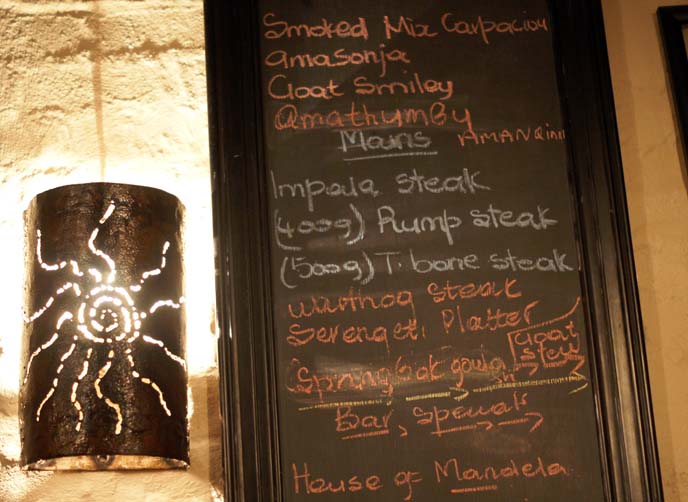 Smoked Mix Carpaciou
amasonja
Goat Smiley
amathumbu
AMANQINI
Mains
Impala steak
(400g) Rump steak
(500g) T. bone steak
warthog steak
Serengeti Platter
Springbok goulash
Goat stew
Bar, specials
House of Mandela